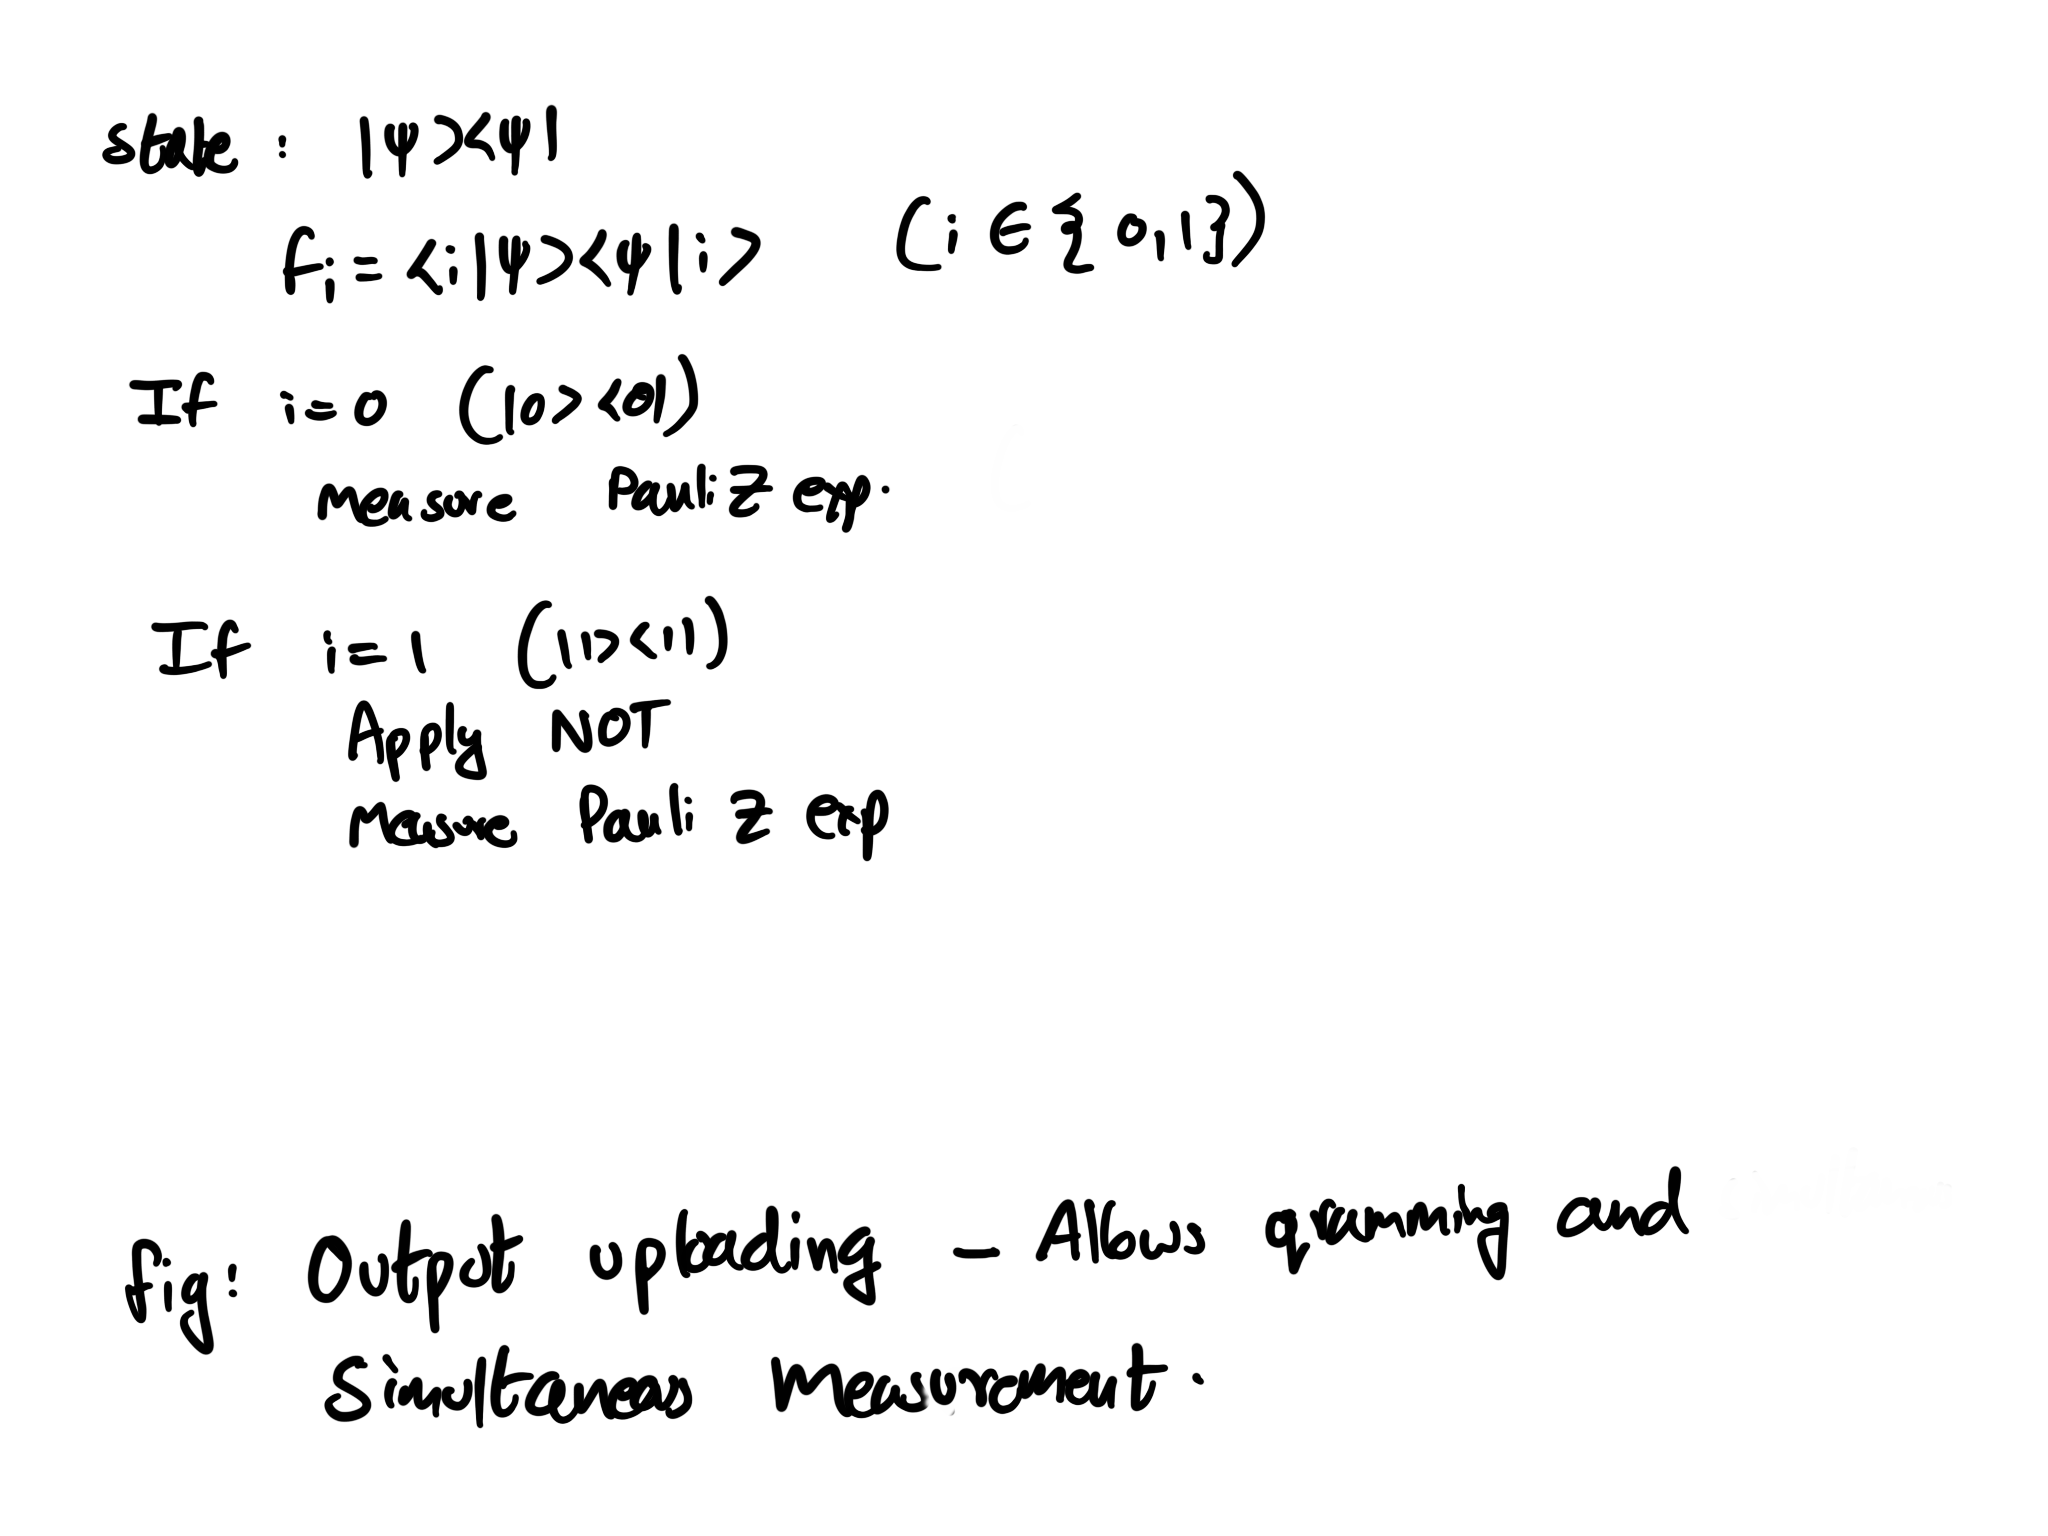 state : |ψ><ψ|
fi = <i|ψ><ψ|i> (i ∈ { 0,1})
If i=0 (|0><0|)
Measure Pauli Z exp.
If i=1 (|1><1|)
Apply NOT
Measure Pauli Z exp
fig: Output uploading – Allows qramming and
Simultaneous Measurement.